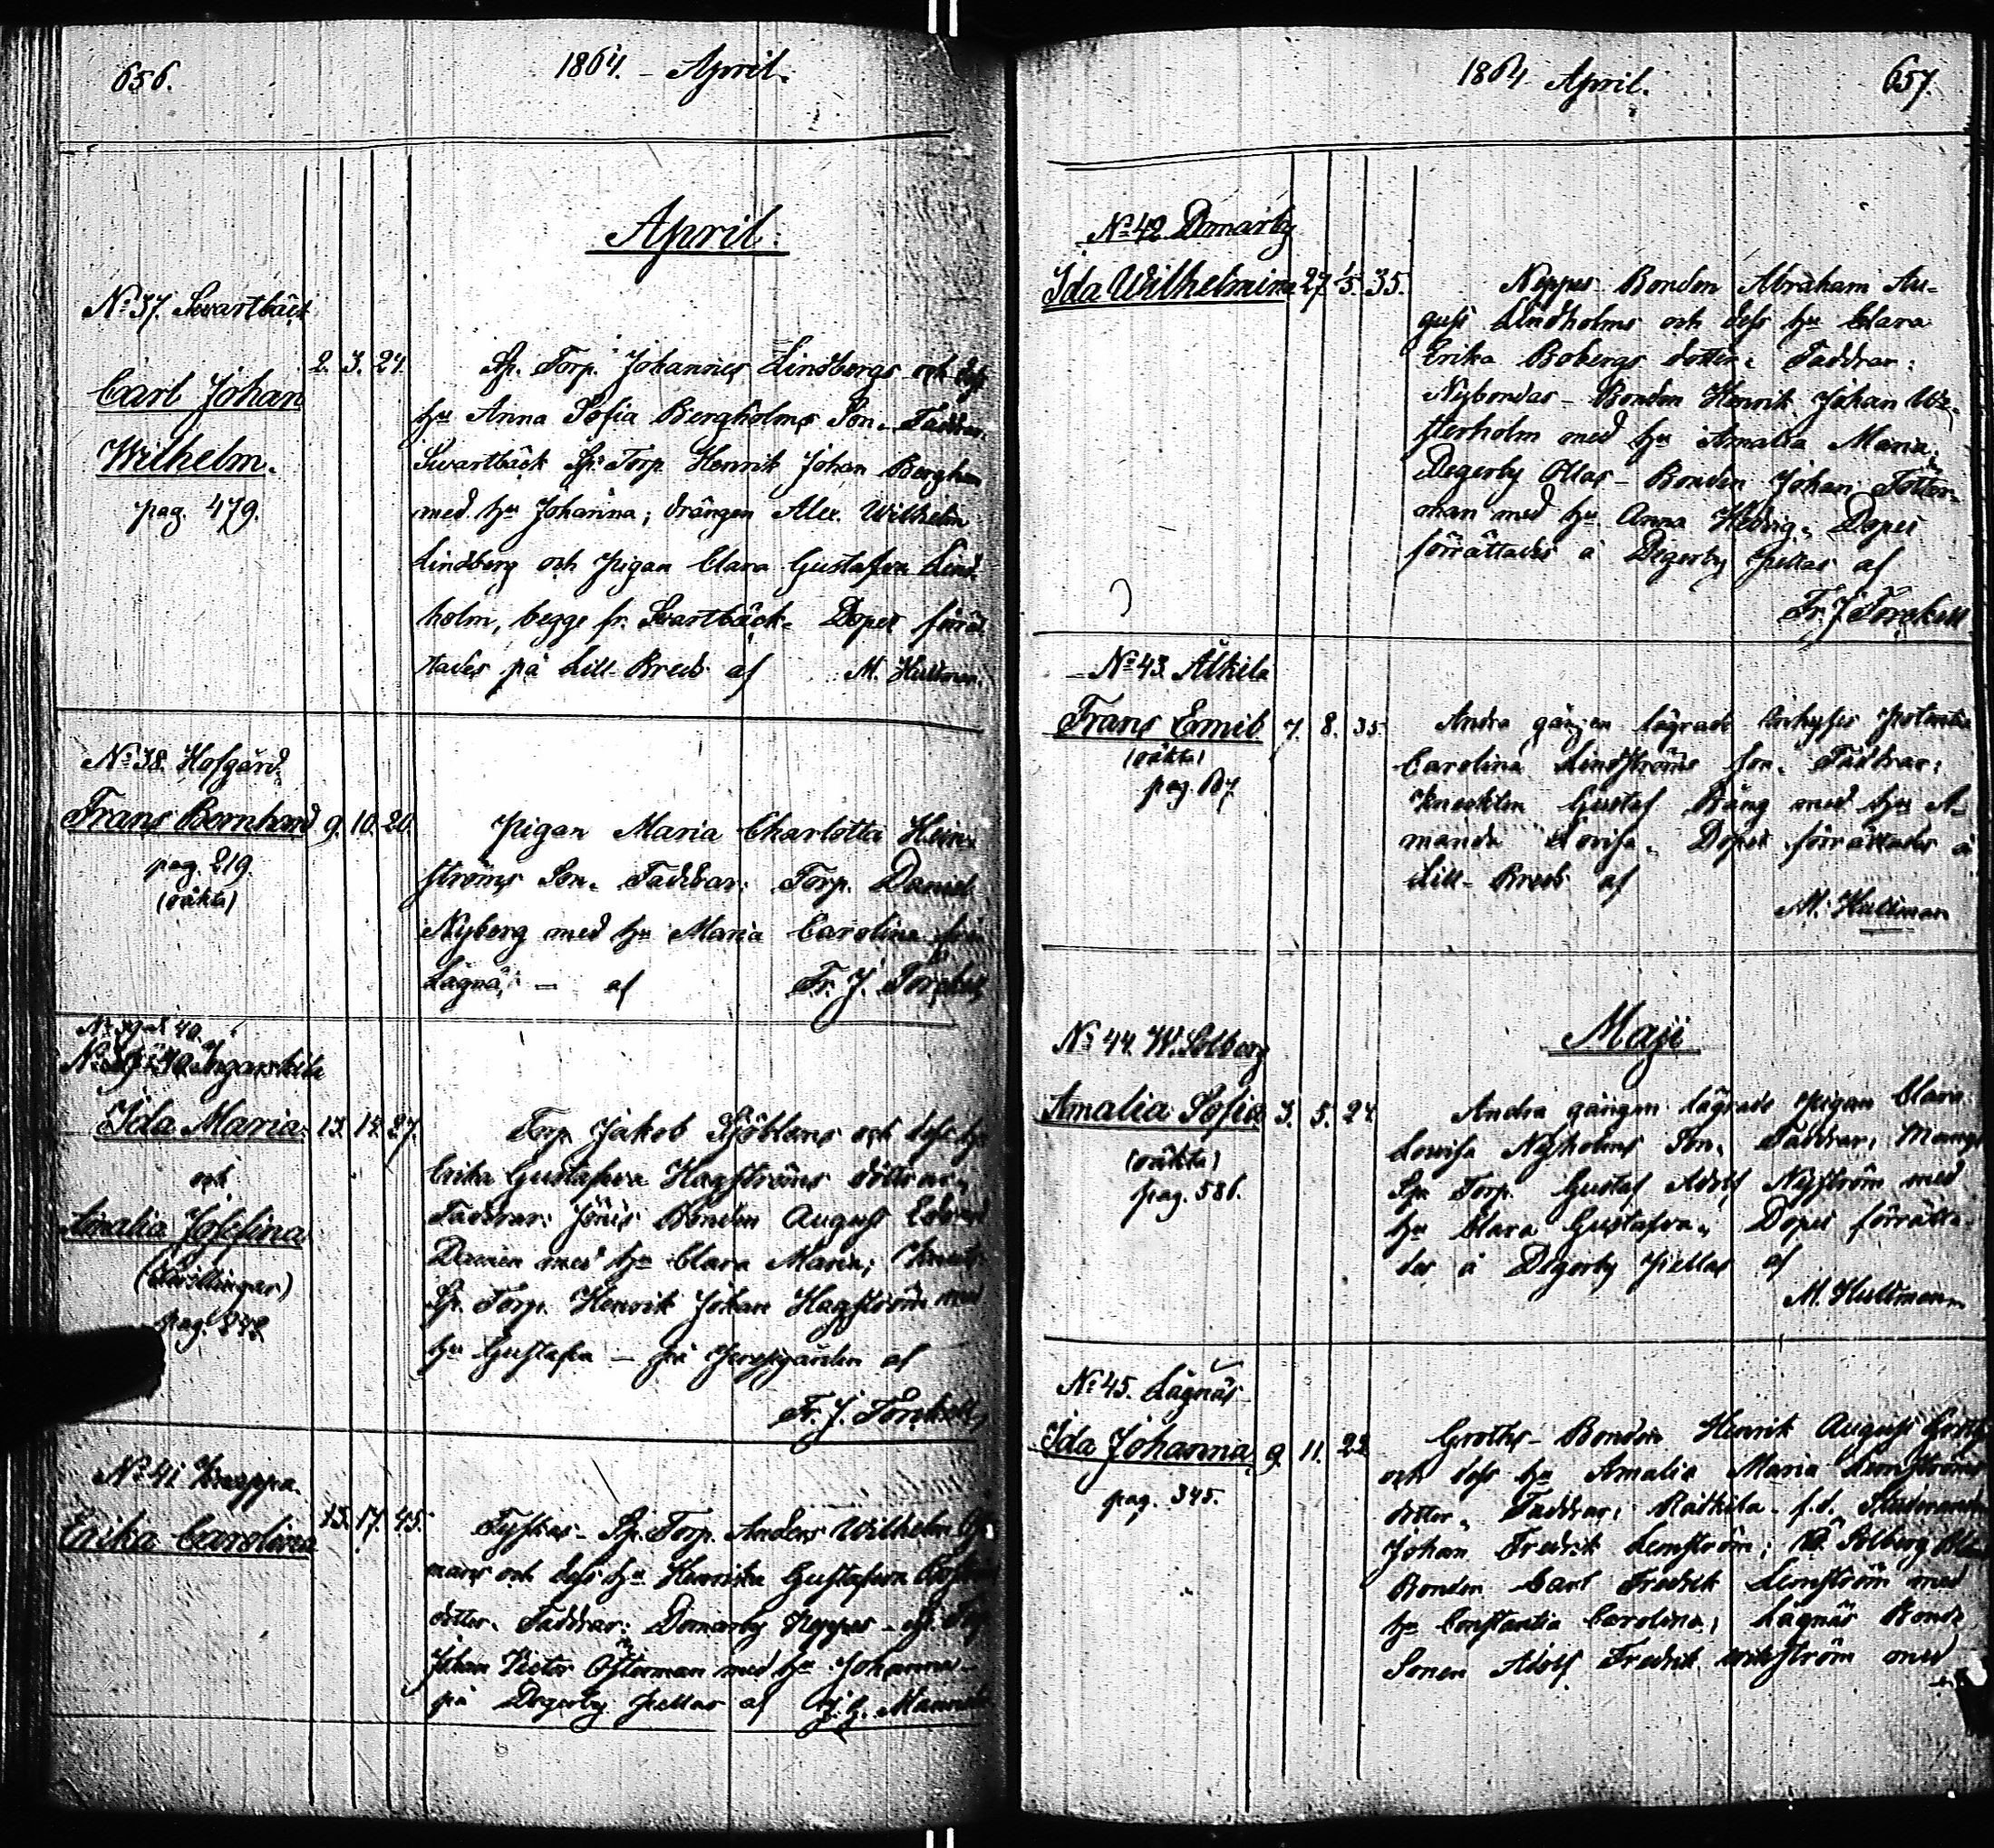 656.
1864. - April.
April.
No 37. Swartbäck
Carl Johan
Wilhelm.
pag. 479.
2. 3. 24.
Sp. Torp. Johannes Lindbergs och dess
hu Anna Sofia Bergholms Son. Faddrar:
Swartbäck Sp. Torp. Henrik Johan
med hu Johanna; drängen Alex. Wilhelm
Lindberg och pigan Clara Gustafva Lind-
holm, begge fr. Svartbäck. Dopet förrät-
tades på Lill-Breds af M. Hultman.
No 38. Hofgård.
Frans Bernhard 9. 10. 20.
pag. 219.
(oäkta)
Pigan Maria Charlotta Hein-
ströms Son. Faddrar: Torp. Daniel
Nyberg med hu Maria Carolina från
Lägnä; — af Fr. J. Torckell
No 39 och 40.
No 39 40 Ingarskila
Ida Maria 13. 17. 27.
och
Amalia Josefina
(Twillingar)
pag.
Torp. Jakob Sjöbloms och dess hu
Erika Gustafva Hagströms döttrar.
Faddrar: Jönis Bonden August
med hu Clara Maria;
Sp. Torp. Henrik Johan Hagström med
hu Gustafva — på Prestgården af
Fr. J. Torckell
No 41
Erika Carolina
13. 17. 45.
Sp. Torp. Anders Wilhelm
mans och dess hu Henrika Gustafva
dotter. Faddrar: Domarby Neppes -
Johan Victor Österman med hu Johanna -
på Degerby Pellas af
1864 April. 657.
No 42. Domarby
Ida Wilhelmina 27. 1/5. 35.
Neppes Bonden Abraham Au-
gust Lindholms och dess hu Clara
Erika Bobergs dotter. Faddrar:
Nybondas - Bonden Henrik Johan We-
sterholm med hu Amalia Maria;
Degerby Ollas - Bonden Johan Totter-
man med hu Anna Hedvig. Dopet
förrättades å Degerby Pellas af
Fr. J. Torckell
No 43 Älkila
Frans Emil 7. 8. 35.
(oäkta)
pag.
Andra gången lägrade Inhyses
Carolina Lindströms son. Faddrar:
Gustaf Bäng med hu A-
manda Lovisa. Dopet förrättades å
Lill-Breds af
M. Hultman
Maji
No 44. W. Solberg
Amalia Sofia 3. 5. 24
(oäkta)
pag. 586.
Andra gången lägrade pigan Clara
Lovisa Nyholms Son. Faddrar:
Sp. Torp. Gustaf Adolf Nyström med
hu Clara Gustafva. Dopet förrätta-
des å Degerby Pellas af
M. Hultman
No 45. Lägnäs
Ida Johanna 9. 11. 22
pag. 345.
Groths - Bonden Henrik August
och dess hu Amalia Maria Lemströms
dotter. Faddrar: Rätkila - f.d.
Johan Fredrik Lemström; Ö. Solberg
Bonden Carl Fredrik Lemström med
hu Constantia Carolina; Lägnäs Bonde
Sonen Adolf Fredrik Wikström med